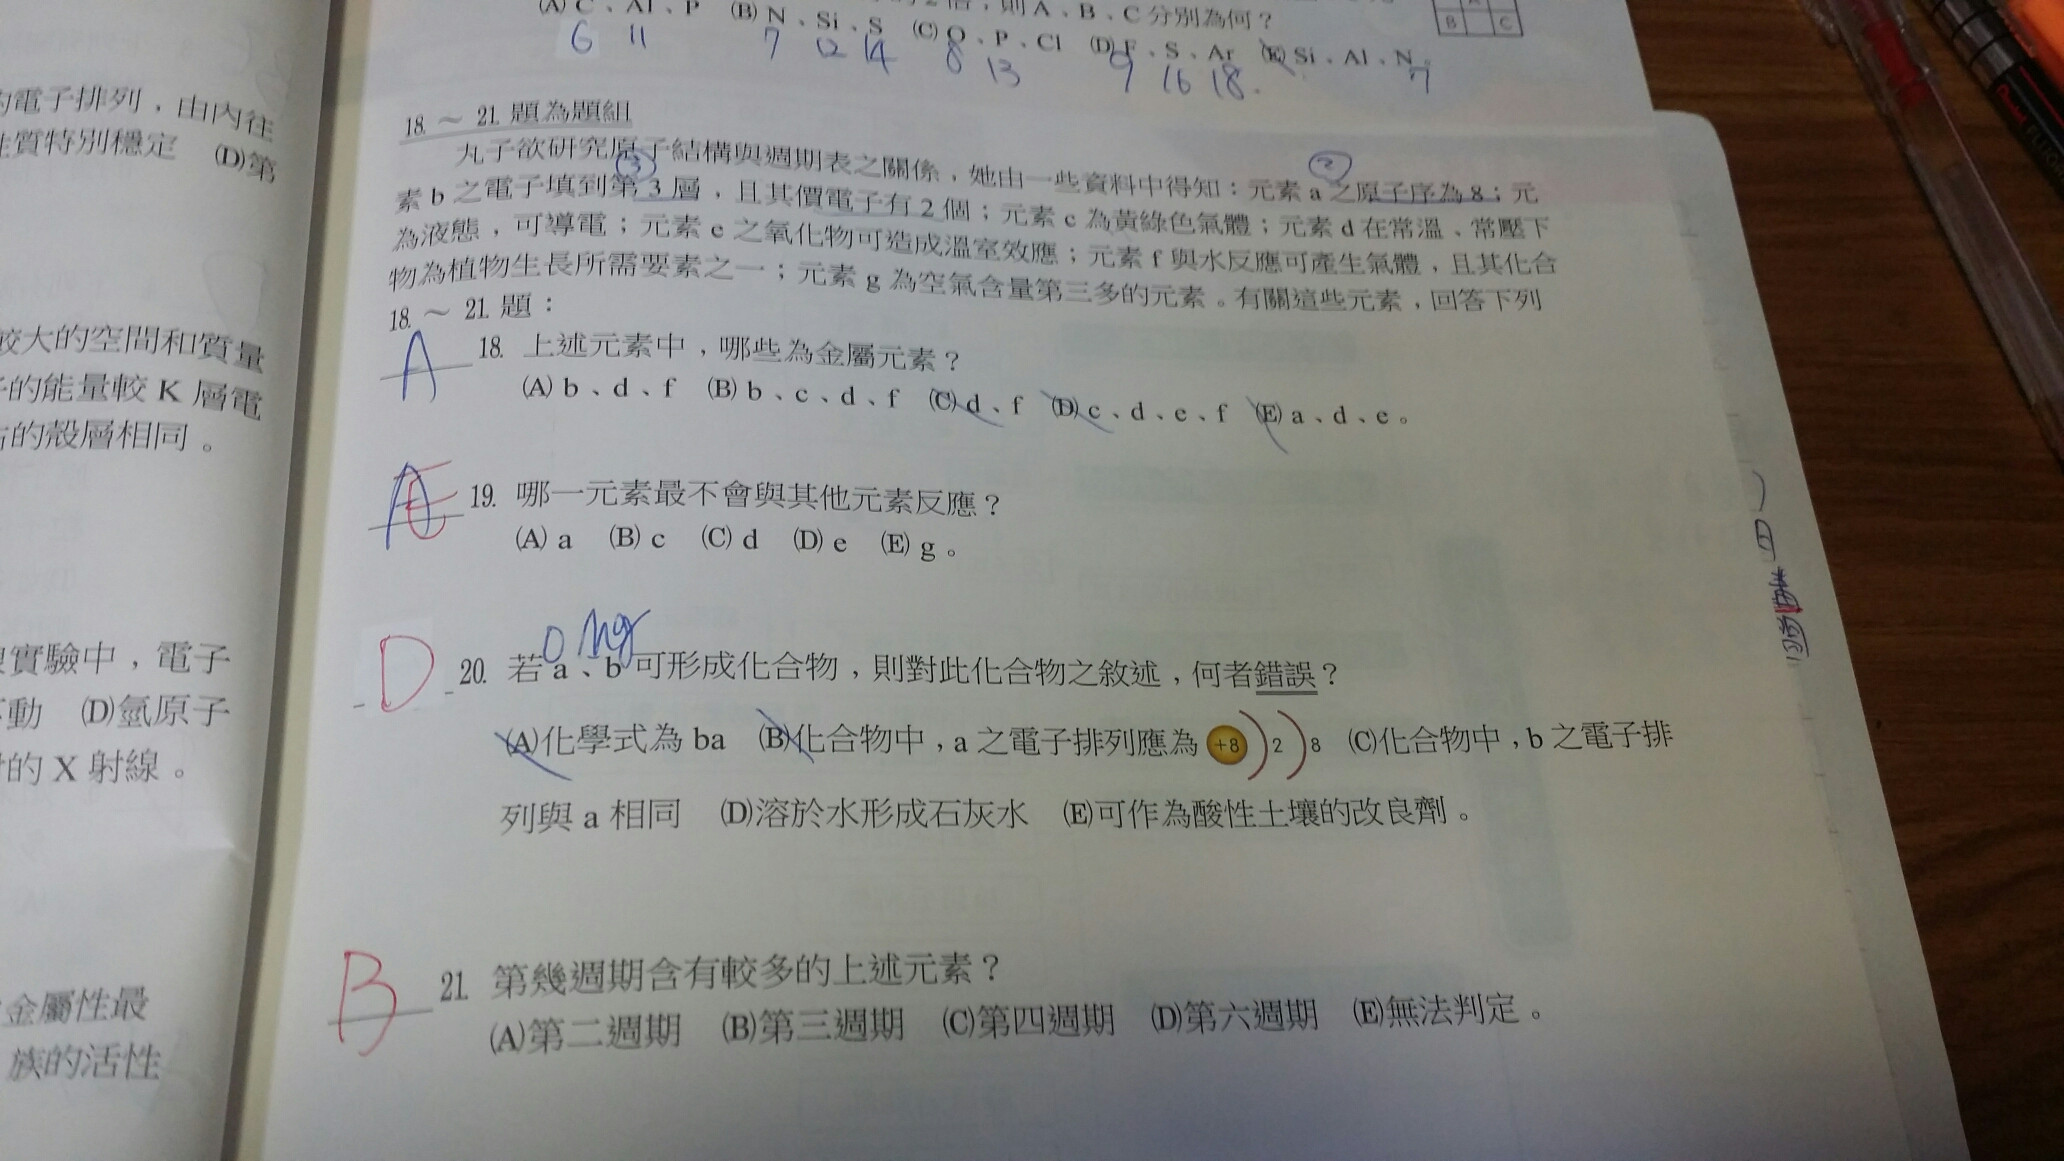 倍,則A、B、C分別為何?
(A) C、Al、P (B) N、Si、S (C) O、P、Cl (D) F、S、Ar (E) Si、Al、N。
B C
6 11 7 12 14 8 13 9 16 18. 7
18. ~ 21. 題為題組
丸子欲研究原子結構與週期表之關係,她由一些資料中得知:元素 a 之原子序為 8;元
③ ②
素 b 之電子填到第 3 層,且其價電子有 2 個;元素 c 為黃綠色氣體;元素 d 在常溫、常壓下
為液態,可導電;元素 e 之氧化物可造成溫室效應;元素 f 與水反應可產生氣體,且其化合
物為植物生長所需要素之一;元素 g 為空氣含量第三多的元素。有關這些元素,回答下列
18. ~ 21. 題:
A 18. 上述元素中,哪些為金屬元素?
(A) b、d、f (B) b、c、d、f (C) d、f (D) c、d、e、f (E) a、d、e。
A E 19. 哪一元素最不會與其他元素反應?
(A) a (B) c (C) d (D) e (E) g。
O Mg
D 20. 若 a、b 可形成化合物,則對此化合物之敘述,何者錯誤?
(A)化學式為 ba (B)化合物中,a 之電子排列應為 +8 2 8 (C)化合物中,b 之電子排
列與 a 相同 (D)溶於水形成石灰水 (E)可作為酸性土壤的改良劑。
B 21. 第幾週期含有較多的上述元素?
(A)第二週期 (B)第三週期 (C)第四週期 (D)第六週期 (E)無法判定。
的電子排列,由內往
性質特別穩定 (D)第
較大的空間和質量
子的能量較 K 層電
占的殼層相同。
實驗中,電子
動 (D)氫原子
的 X 射線。
金屬性最
族的活性